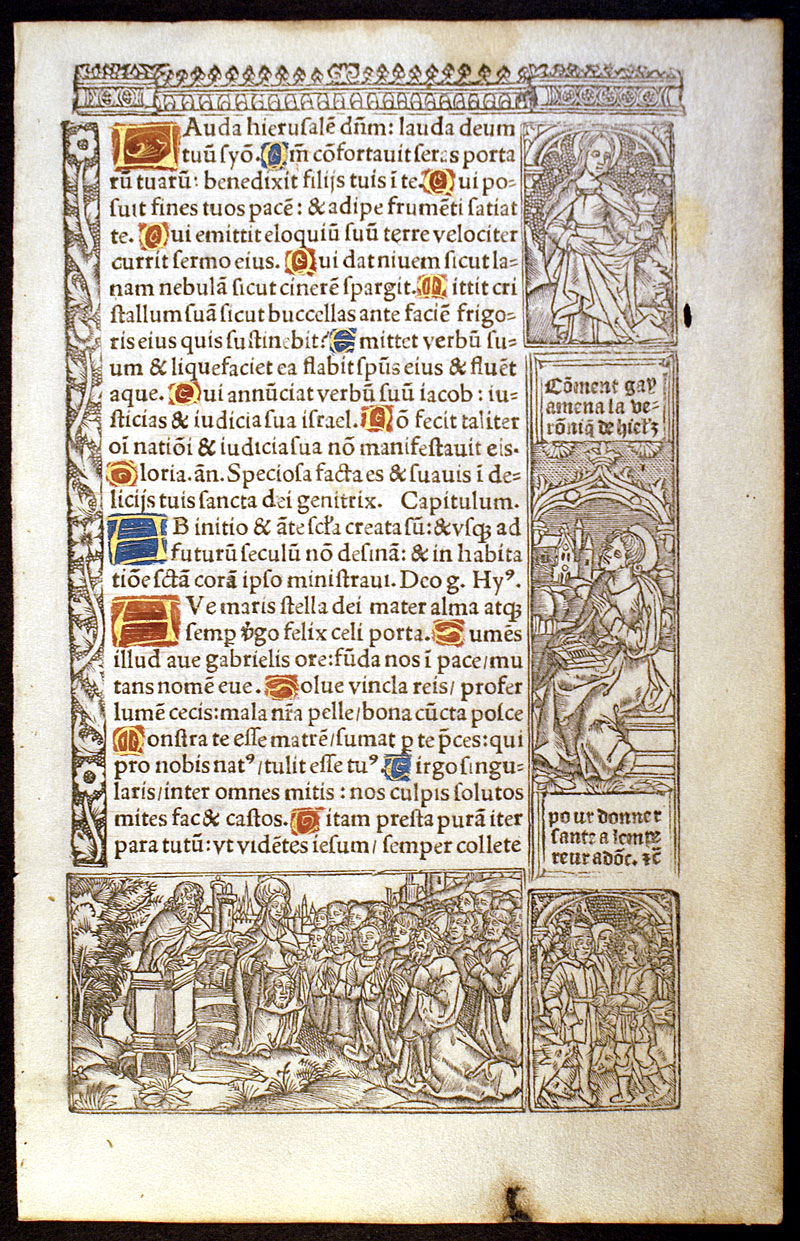 LAuda hierusalē dn̄m: lauda deum
tuū syō. Qm̄ cōfortavit seras porta
rū tuarū: benedixit filijs tuis ī te. Qui po=
suit fines tuos pacē: & adipe frumēti satiat
te. Qui emittit eloquiū suū terre velociter
currit sermo eius. Qui dat niuem sicut la=
nam nebulā sicut cinerē spargit. Mittit cri
stallum suā sicut buccellas ante faciē frigo=
ris eius quis sustinebit? Emittet verbū su=
um & liquefaciet ea flabit spūs eius & fluēt
aque. Qui annūciat verbū suū iacob: iu=
sticias & iudicia sua israel. Nō fecit taliter
oī natiōi & iudicia sua nō manifestauit eis.
Gloria. ān. Speciosa facta es & suauis ī de=
licijs tuis sancta dei genitrix. Capitulum.
AB initio & āte scl̄a creata sū: & vsqꝫ ad
futurū seculū nō desinā: & in habita
tiōe sctā corā ipso ministraui. Deo g. Hyꝰ.
AVe maris stella dei mater alma atqꝫ
semꝑ v̄go felix celi porta. Sumēs
illud aue gabrielis ore: fūda nos ī pace/mu
tans nomē eue. Solue vincla reis/ profer
lumē cecis: mala nr̄a pelle/bona cūcta posce
Monstra te esse matrē/sumat ꝑ te p̄ces: qui
pro nobis natꝰ/tulit esse tuꝰ. Virgo singu=
laris/inter omnes mitis: nos culpis solutos
mites fac & castos. Vitam presta purā iter
para tutū: vt vidētes iesum/ semper collete
Cōment gay
amena la ve=
rōniq̄ de hielꝫ
pour donner
sante a lempe
reur adōc. ⁊c̄